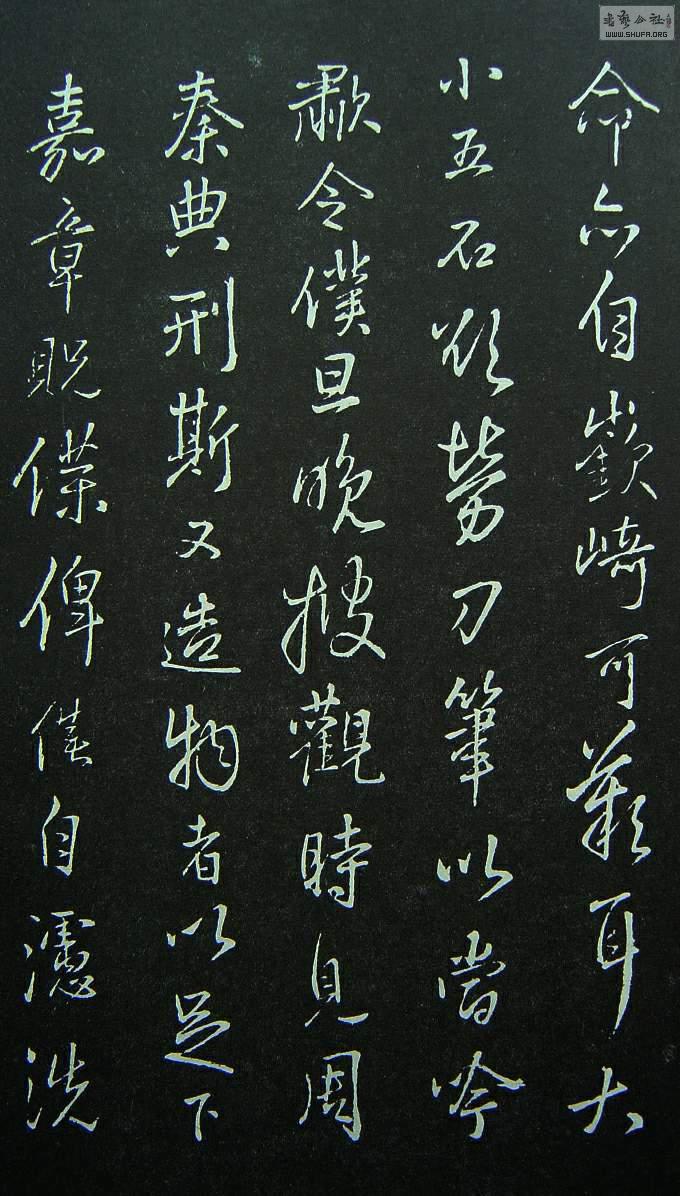 命亦自嶔崎可歎耳大
小五石欲勞刀筆以當吟
歗令僕旦晚披觀時見周
秦典刑斯又造物者以足下
嘉章貺僕俾僕自濾洗
書藝公社
WWW.SHUFA.ORG